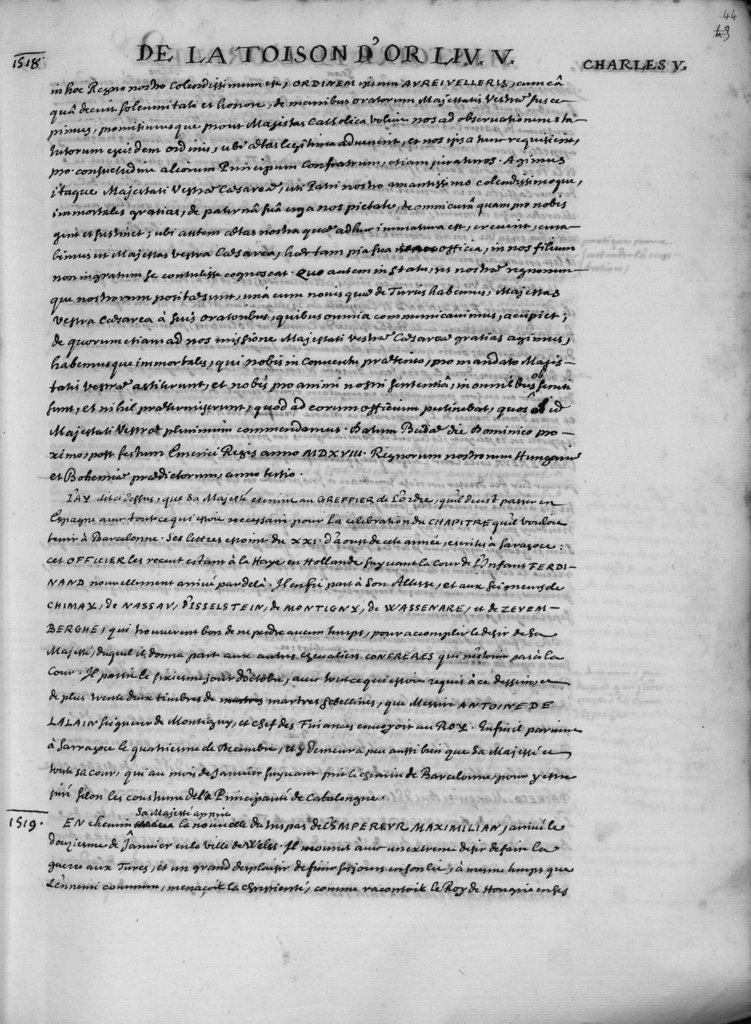 44
43
1518.
DE LA TOISON D'OR LIV. V.
CHARLES V.
in hoc Regno nostro colendissimum est, ORDINEM AUREI VELLERIS, cum eâ
quâ decuit solemnitate et honore, de manibus oratorum Majestatis Vestræ susce-
pimus, promisimusque prout Majestas Catholica voluit nos ad observationem sta-
tutorum ejusdem ordinis, ubi ætas legitima advenerit, et nos ipsa tunc requisierit,
pro consuetudine aliorum Principum Confratrum, etiam juraturos. Agimus
itaque Majestati Vestræ Cæsareæ, uti Patri nostro amantissimo colendissimoque,
immortales gratias, de paternâ suâ erga nos pietate, de omni curâ quam pro nobis
gerit et sustinet; ubi autem ætas nostra quæ adhuc immatura est, creverit, cura-
bimus ut Majestas Vestra Cæsarea, hæc tam pia sua officia, in nos filium
non ingratum se contulisse cognoscat. Quo autem in statu, res nostræ regnorum-
que nostrorum positæ sunt, unà cum novis quæ de Turcis habemus, Majestas
Vestra Cæsarea à suis oratoribus, quibus omnia communicavimus, accipiet;
de quorum etiam ad nos missione Majestati Vestræ Cæsareæ gratias agimus,
habemusque immortales, qui nobis in Conventu præterito, pro mandato Majes-
tatis Vestræ astiterunt, et nobis pro animi nostri sententiâ, in omnibus
sunt, et nihil prætermiserunt, quod ad eorum officium pertinebat, quos ob id
Majestati Vestræ plurimum commendamus. Datum Budæ die Dominico pro-
ximo, post festum Emerici Regis anno MDXVIII. Regnorum nostrorum Hungariæ
et Bohemiæ prædictorum, anno tertio.
J'AY dit ci dessus, que Sa Majesté escrivit au GREFFIER de L'ordre, qu'il deust passer en
Espagne avec tout ce qui estoit necessaire pour la celebration du CHAPITRE qu'il vouloit
tenir à Barcelonne. Ses lettres estoient du XXI. d'Aoust de cete année, escrites à Saragoce:
cet OFFICIER les receut estant à la Haye en Hollande suyvant la Cour de L'Infant FERDI-
NAND nouvellement arrivé par delà. Il en fit part à Son Altesse, et aux Seigneurs de
CHIMAY, de NASSAU, D'ISSELSTEIN, de MONTIGNY, de WASSENARE, et de ZEVEM-
BERGHE, qui trouverent bon de ne perdre aucun temps, pour accomplir le desir de Sa
Majesté, duquel il donna part aux autres chevaliers CONFRERES qui n'estoient pas à la
Cour. Il partit le sixiesme jour d'octobre, avec tout ce qui estoit requis à ce dessein, et
de plus trente deux timbres de martres sebellines, que Messire ANTOINE DE
LALAIN Seigneur de Montigny, et chef des Finances envoyoit au ROY. Enfin il parvint
à Sarragoce le quatriesme de Decembre, et y demeura peu aussi bien que Sa Majesté et
toute sa cour, qui au mois de Janvier suyvant prit le chemin de Barcelonne, pour y estre
juré selon les coustumes de la Principauté de Cathalongne.
1519.
EN chemin Sa Majesté apprit la nouvelle du trespas de L'EMPEREUR MAXIMILIAN, arrivé le
douziesme de Janvier en la ville de Weles. Il mourut avec un extreme desir de faire la
guerre aux Turcs, et un grand desplaisir de finir ses jours en son lit, à mesme temps que
L'ennemi commun, menaçoit la chrestienté, comme racontoit le Roy de Hongrie en ses